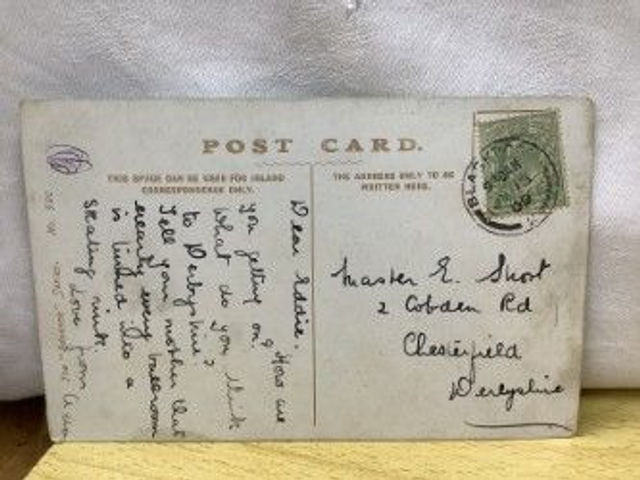 POST CARD.
THIS SPACE CAN BE USED FOR INLAND
CORRESPONDENCE ONLY.
THE ADDRESS ONLY TO BE
WRITTEN HERE.
Dear Eddie. How are
you getting on?
What do you think
to Derbyshire?
Tell your mother that
nearly every ballroom
is turned into a
skating rink.
Love from
Master E. Short
2 Cobden Rd
Chesterfield
Derbyshire